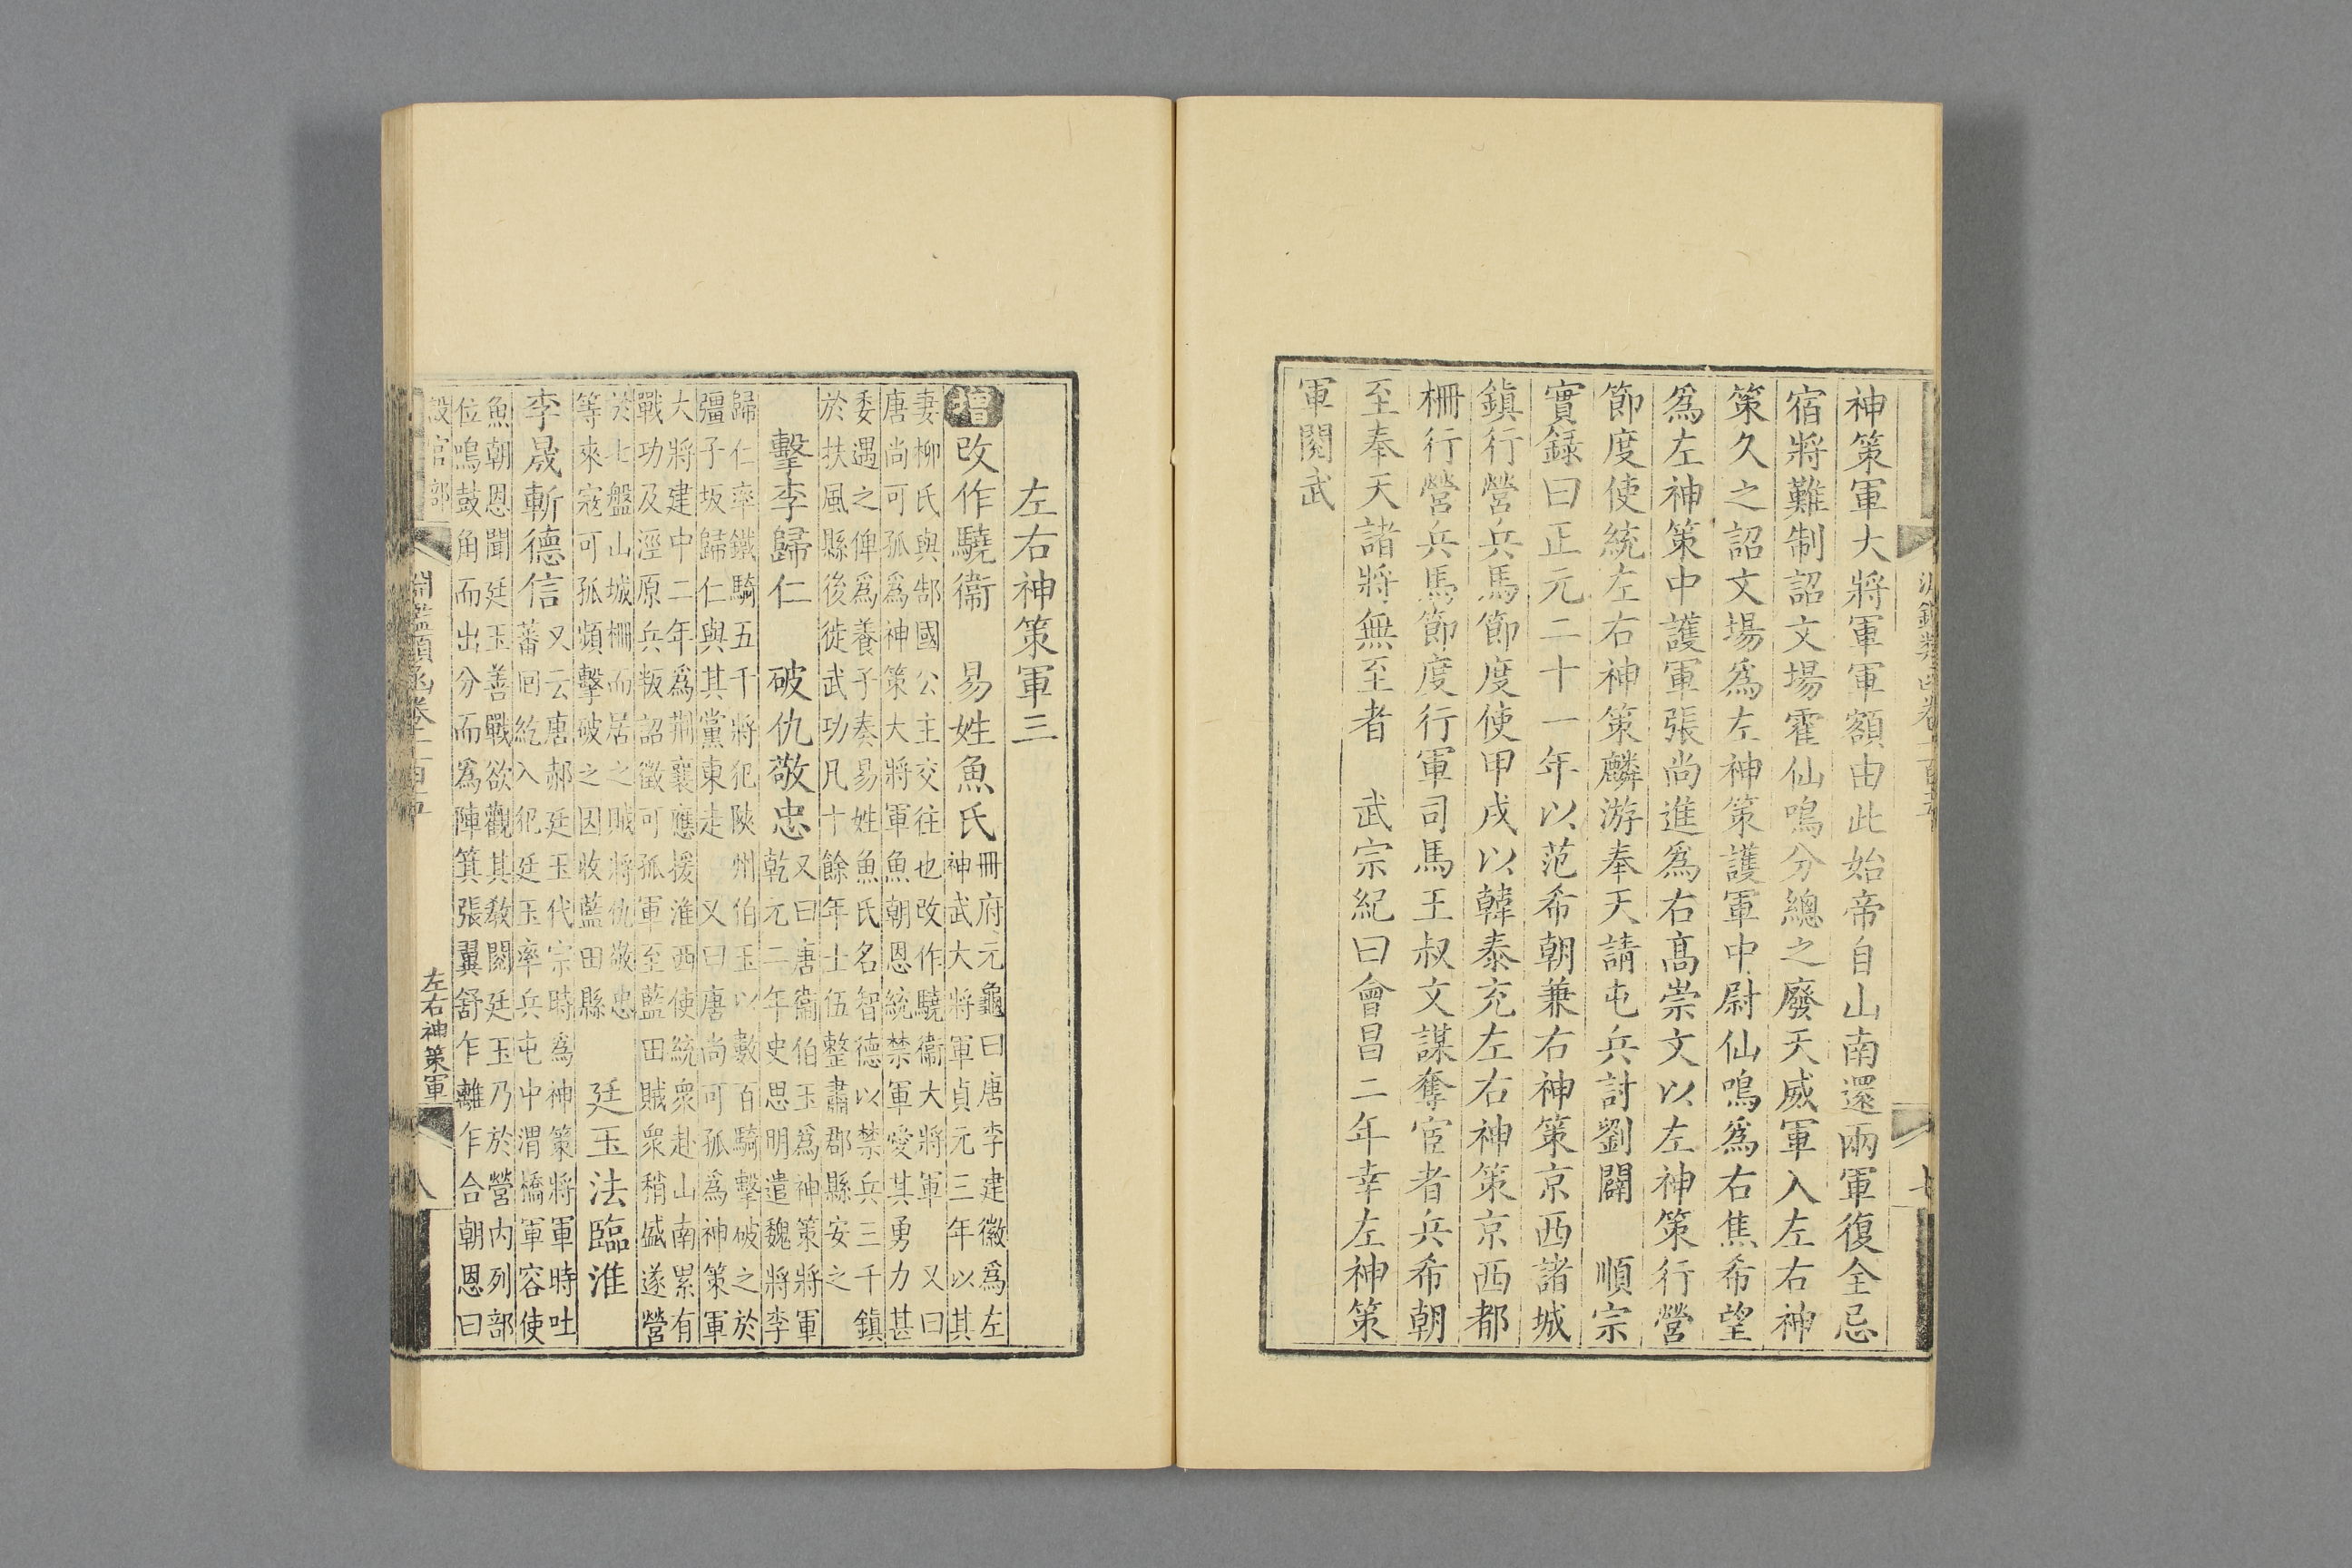 神策軍大將軍軍額由此始帝自山南還兩軍復全忌
宿將難制詔文場霍仙鳴分總之廢天威軍入左右神
策久之詔文場爲左神策護軍中尉仙鳴爲右焦希望
爲左神策中護軍張尚進爲右髙崇文以左神策行營
節度使統左右神策麟游奉天請屯兵討劉闢　順宗
實録曰正元二十一年以范希朝兼右神策京西諸城
鎮行營兵馬節度使甲戌以韓泰充左右神策京西都
柵行營兵馬節度行軍司馬王叔文謀奪宦者兵希朝
至奉天諸將無至者　武宗紀曰會昌二年幸左神策
軍閱武
左右神策軍三
增改作驍衞　易姓魚氏册府元龜曰唐李建徽爲左
神武大將軍貞元三年以其
妻柳氏與郜國公主交往也改作驍衞大將軍　又曰
唐尚可孤爲神策大將軍魚朝恩統禁軍愛其勇力甚
委遇之俾爲養子奏易姓魚氏名智德以禁兵三千鎮
於扶風縣後徙武功凡十餘年士伍整肅郡縣安之
擊李歸仁　破仇敬忠又曰唐衞伯玉爲神策將軍
乾元二年史思明遣魏將李
歸仁率鐵騎五千將犯陝州伯玉以數百騎擊破之於
彊子坂歸仁與其黨東走　又曰唐尚可孤爲神策軍
大將建中二年爲荆襄應援淮西使統衆赴山南累有
戰功及涇原兵叛詔徵可孤軍至藍田賊衆稍盛遂營
於七盤山城柵而居之賊將仇敬忠
等來寇可孤頻擊破之因收藍田縣　廷玉法臨淮
李晟斬德信又云唐郝廷玉代宗時爲神策將軍時吐
蕃回紇入犯廷玉率兵屯中渭橋軍容使
魚朝恩聞廷玉善戰欲觀其教閱廷玉乃於營内列部
位鳴鼓角而出分而爲陣箕張翼舒乍離乍合朝恩曰
設官部
淵鑑類函卷一百
左右神策軍
八